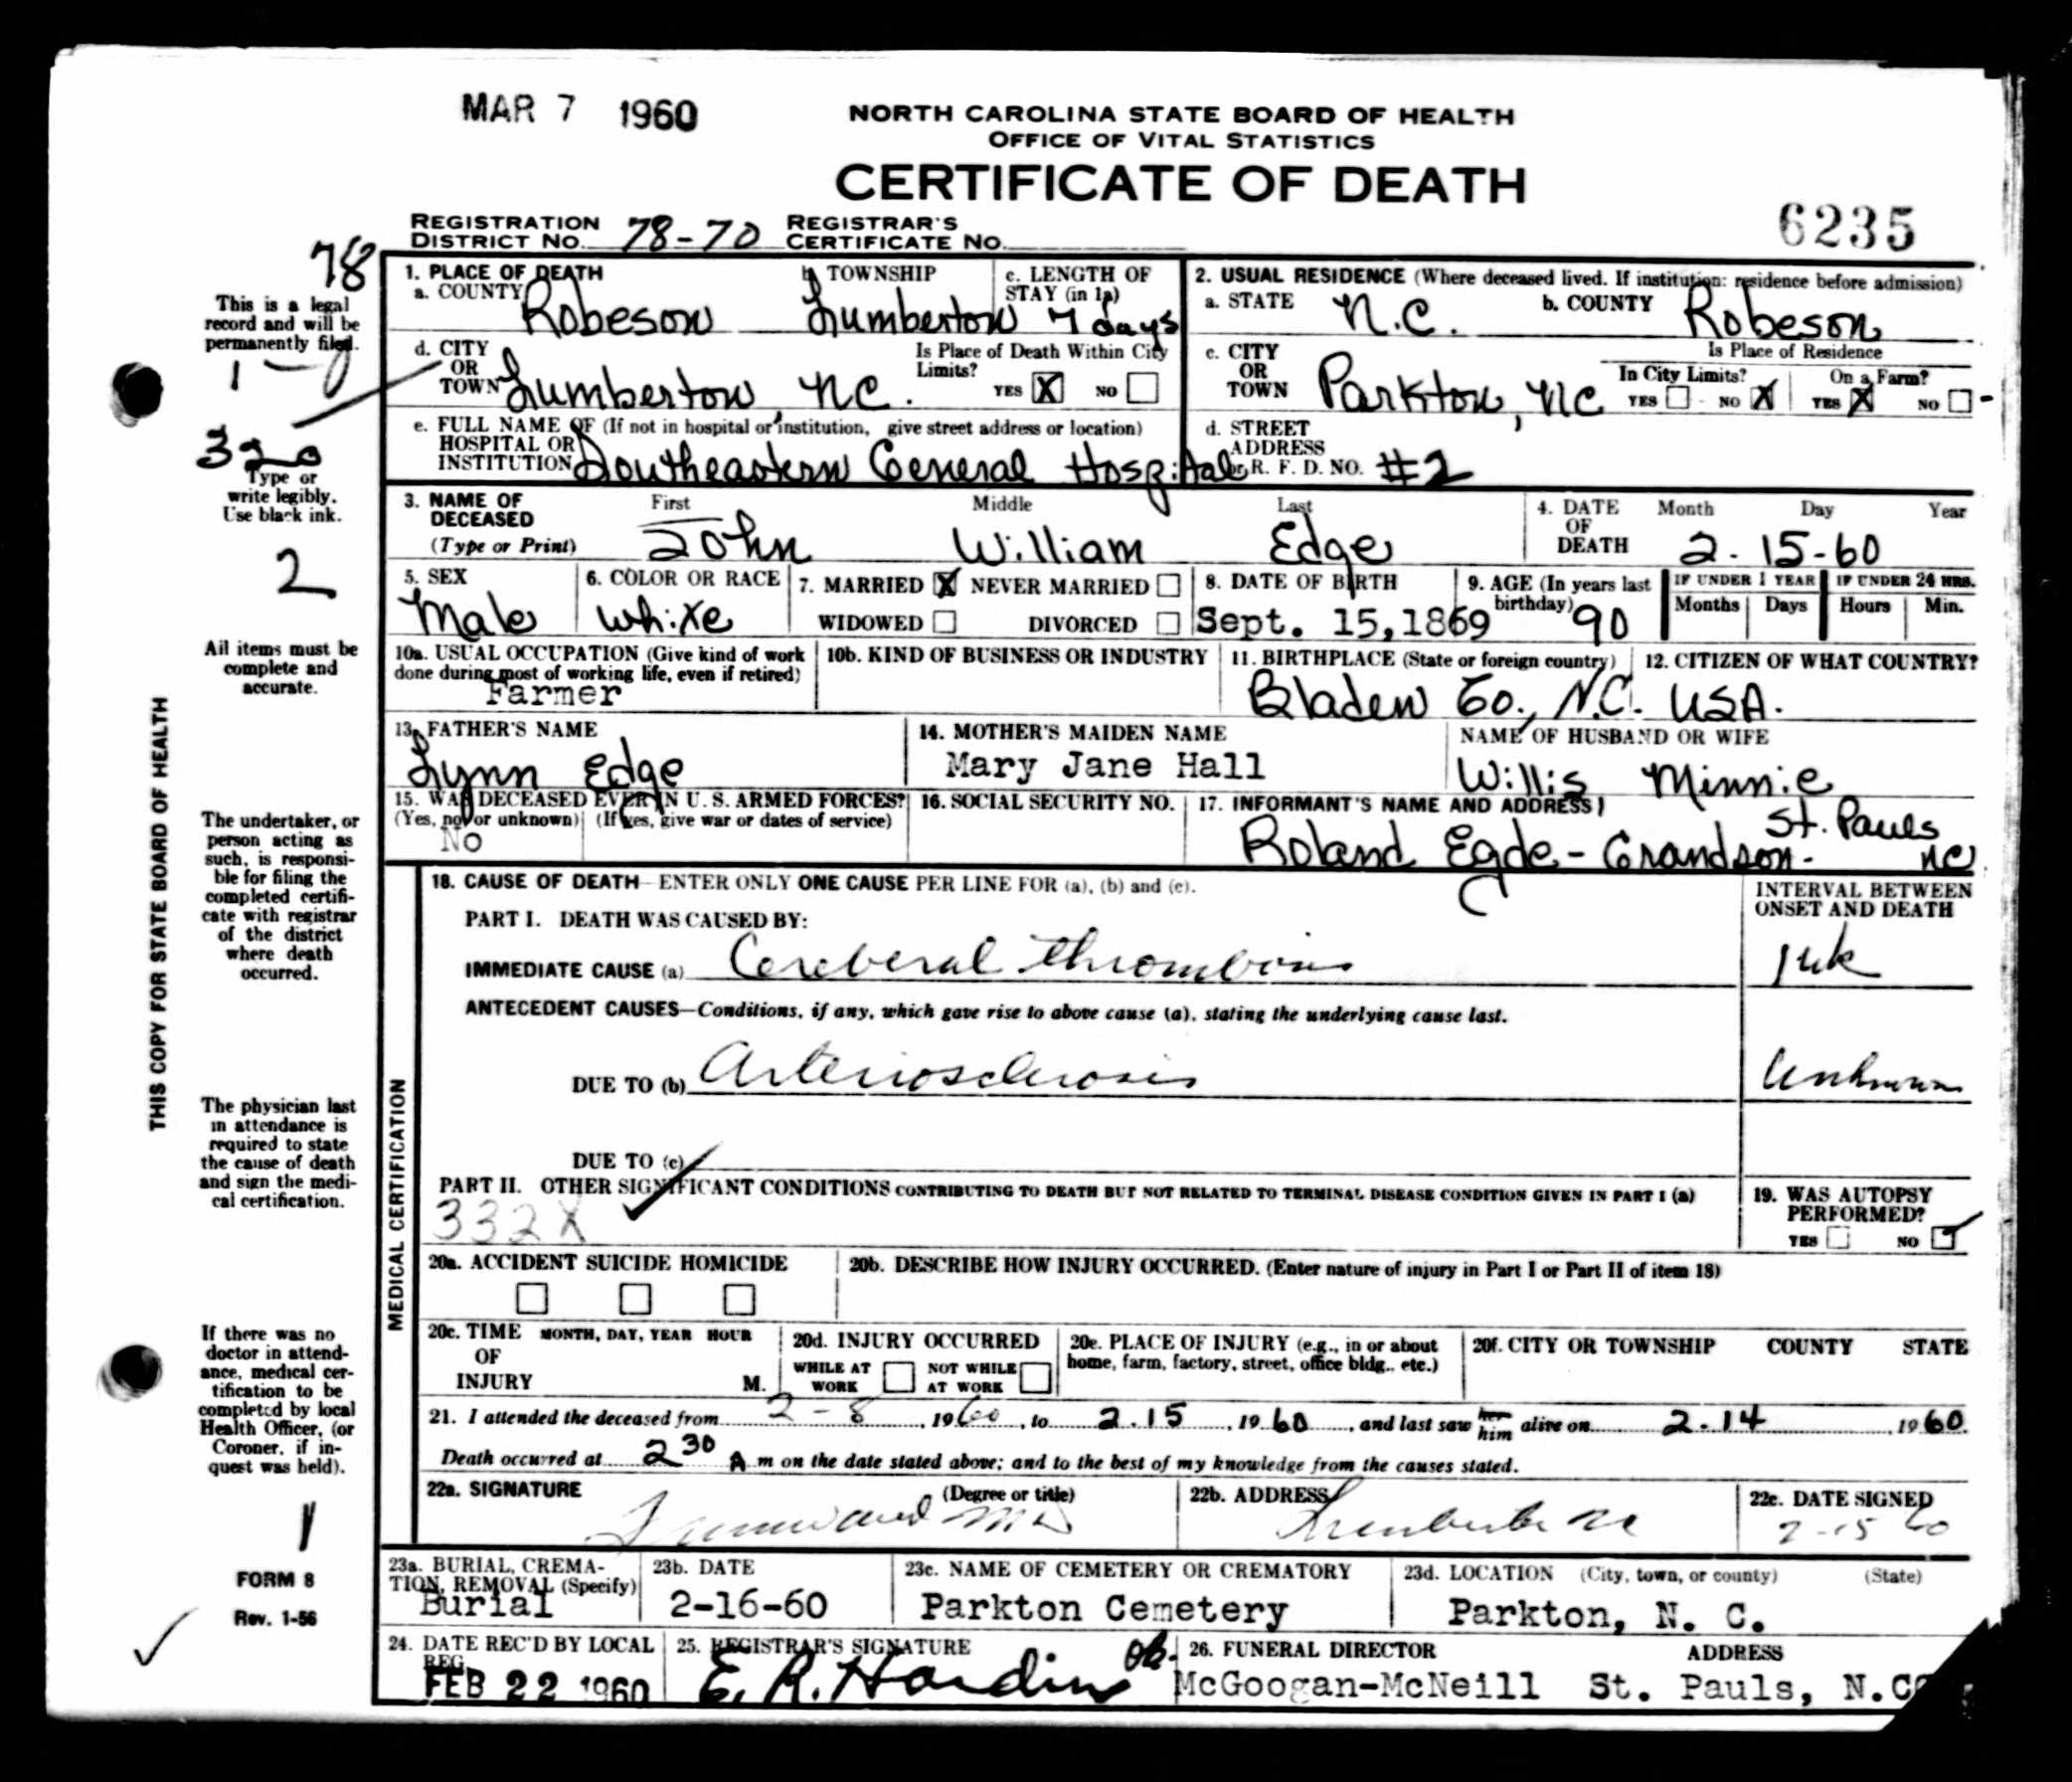 MAR 7 1960
NORTH CAROLINA STATE BOARD OF HEALTH
OFFICE OF VITAL STATISTICS
CERTIFICATE OF DEATH
6235
REGISTRATION DISTRICT NO. 78-70 REGISTRAR'S CERTIFICATE NO.
78
This is a legal record and will be permanently filed.
1
320
Type or write legibly. Use black ink.
2
All items must be complete and accurate.
The undertaker, or person acting as such, is responsible for filing the completed certificate with registrar of the district where death occurred.
The physician last in attendance is required to state the cause of death and sign the medical certification.
If there was no doctor in attendance, medical certification to be completed by local Health Officer, (or Coroner, if inquest was held).
1
FORM 8
Rev. 1-56
THIS COPY FOR STATE BOARD OF HEALTH
1. PLACE OF DEATH
a. COUNTY Robeson
b. TOWNSHIP Lumberton
c. LENGTH OF STAY (in 1a) 7 days
2. USUAL RESIDENCE (Where deceased lived. If institution: residence before admission)
a. STATE N.C. b. COUNTY Robeson
d. CITY OR TOWN Lumberton, NC.
Is Place of Death Within City Limits? YES X NO
c. CITY OR TOWN Parkton, NC
Is Place of Residence
In City Limits? YES NO X On a Farm? YES X NO
e. FULL NAME OF (If not in hospital or institution, give street address or location) HOSPITAL OR INSTITUTION Southeastern General Hospital
d. STREET ADDRESS or R. F. D. NO. #2
3. NAME OF DECEASED (Type or Print)
First Middle Last
John William Edge
4. DATE OF DEATH Month Day Year
2-15-60
5. SEX Male
6. COLOR OR RACE White
7. MARRIED X NEVER MARRIED
WIDOWED DIVORCED
8. DATE OF BIRTH Sept. 15,1869
9. AGE (In years last birthday) 90
IF UNDER 1 YEAR Months Days
IF UNDER 24 HRS. Hours Min.
10a. USUAL OCCUPATION (Give kind of work done during most of working life, even if retired) Farmer
10b. KIND OF BUSINESS OR INDUSTRY
11. BIRTHPLACE (State or foreign country) Bladen Co., N.C.
12. CITIZEN OF WHAT COUNTRY? USA.
13. FATHER'S NAME Lynn Edge
14. MOTHER'S MAIDEN NAME Mary Jane Hall
NAME OF HUSBAND OR WIFE Willis, Minnie
15. WAS DECEASED EVER IN U. S. ARMED FORCES? (Yes, no, or unknown) (If yes, give war or dates of service) No
16. SOCIAL SECURITY NO.
17. INFORMANT'S NAME AND ADDRESS
Roland Egde - Grandson - St. Pauls NC
MEDICAL CERTIFICATION
18. CAUSE OF DEATH—ENTER ONLY ONE CAUSE PER LINE FOR (a), (b) and (c).
INTERVAL BETWEEN ONSET AND DEATH
PART I. DEATH WAS CAUSED BY:
IMMEDIATE CAUSE (a) Cereberal thrombosis 1 wk
ANTECEDENT CAUSES—Conditions, if any, which gave rise to above cause (a), stating the underlying cause last.
DUE TO (b) Arteriosclerosis Unknown
DUE TO (c)
PART II. OTHER SIGNIFICANT CONDITIONS CONTRIBUTING TO DEATH BUT NOT RELATED TO TERMINAL DISEASE CONDITION GIVEN IN PART I (a)
332X
19. WAS AUTOPSY PERFORMED?
YES NO
20a. ACCIDENT SUICIDE HOMICIDE
20b. DESCRIBE HOW INJURY OCCURRED. (Enter nature of injury in Part I or Part II of item 18)
20c. TIME OF INJURY MONTH, DAY, YEAR HOUR M.
20d. INJURY OCCURRED WHILE AT WORK NOT WHILE AT WORK
20e. PLACE OF INJURY (e.g., in or about home, farm, factory, street, office bldg., etc.)
20f. CITY OR TOWNSHIP COUNTY STATE
21. I attended the deceased from 2-8, 1960, to 2.15, 1960, and last saw her him alive on 2.14, 1960.
Death occurred at 2 30 A m on the date stated above; and to the best of my knowledge from the causes stated.
22a. SIGNATURE (Degree or title) MD
22b. ADDRESS Lumberton NC
22c. DATE SIGNED 2-15 60
23a. BURIAL, CREMATION, REMOVAL (Specify) Burial
23b. DATE 2-16-60
23c. NAME OF CEMETERY OR CREMATORY Parkton Cemetery
23d. LOCATION (City, town, or county) (State) Parkton, N. C.
24. DATE REC'D BY LOCAL REG. FEB 22 1960
25. REGISTRAR'S SIGNATURE E. R. Hardin
26. FUNERAL DIRECTOR ADDRESS
McGoogan-McNeill St. Pauls, N.C